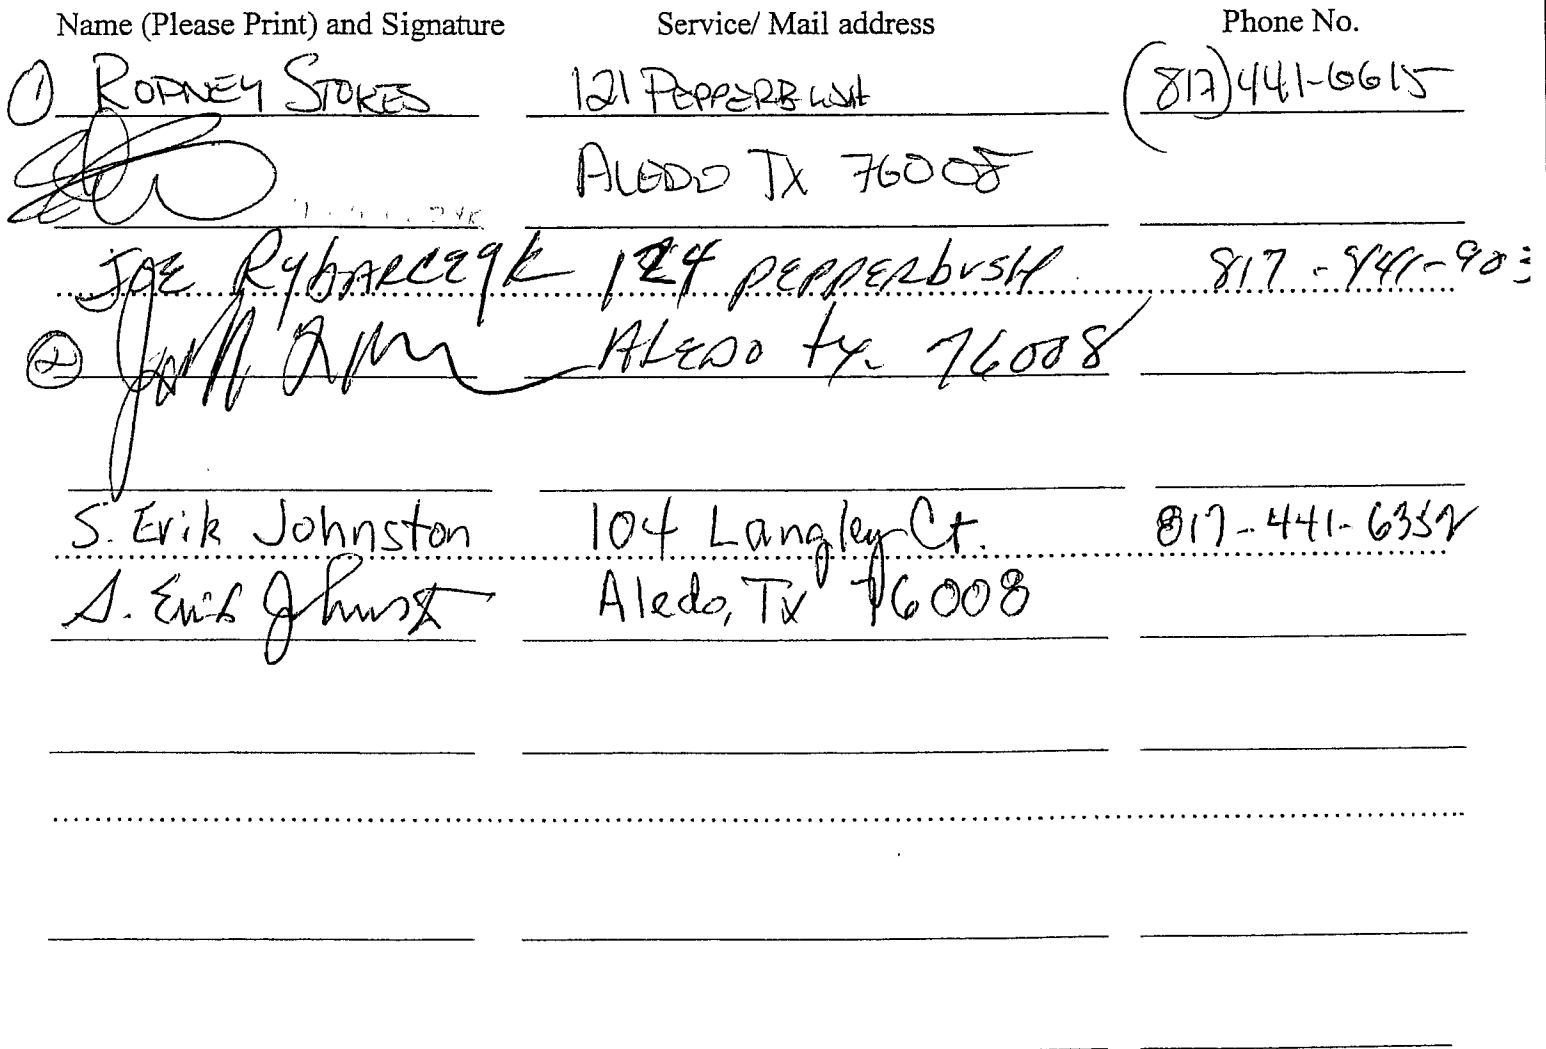 Name (Please Print) and Signature Service/ Mail address Phone No.
① RODNEY STOKES 121 PEPPERBUSH (817) 441-6615
ALEDO TX 76008
JOE RYBARCZYK 124 PEPPERbUSH 817-441-
② ALEDO tx. 76008
S. Erik Johnston 104 Langley Ct. 817-441-6352
S. Erik Johnston Aledo, Tx 76008